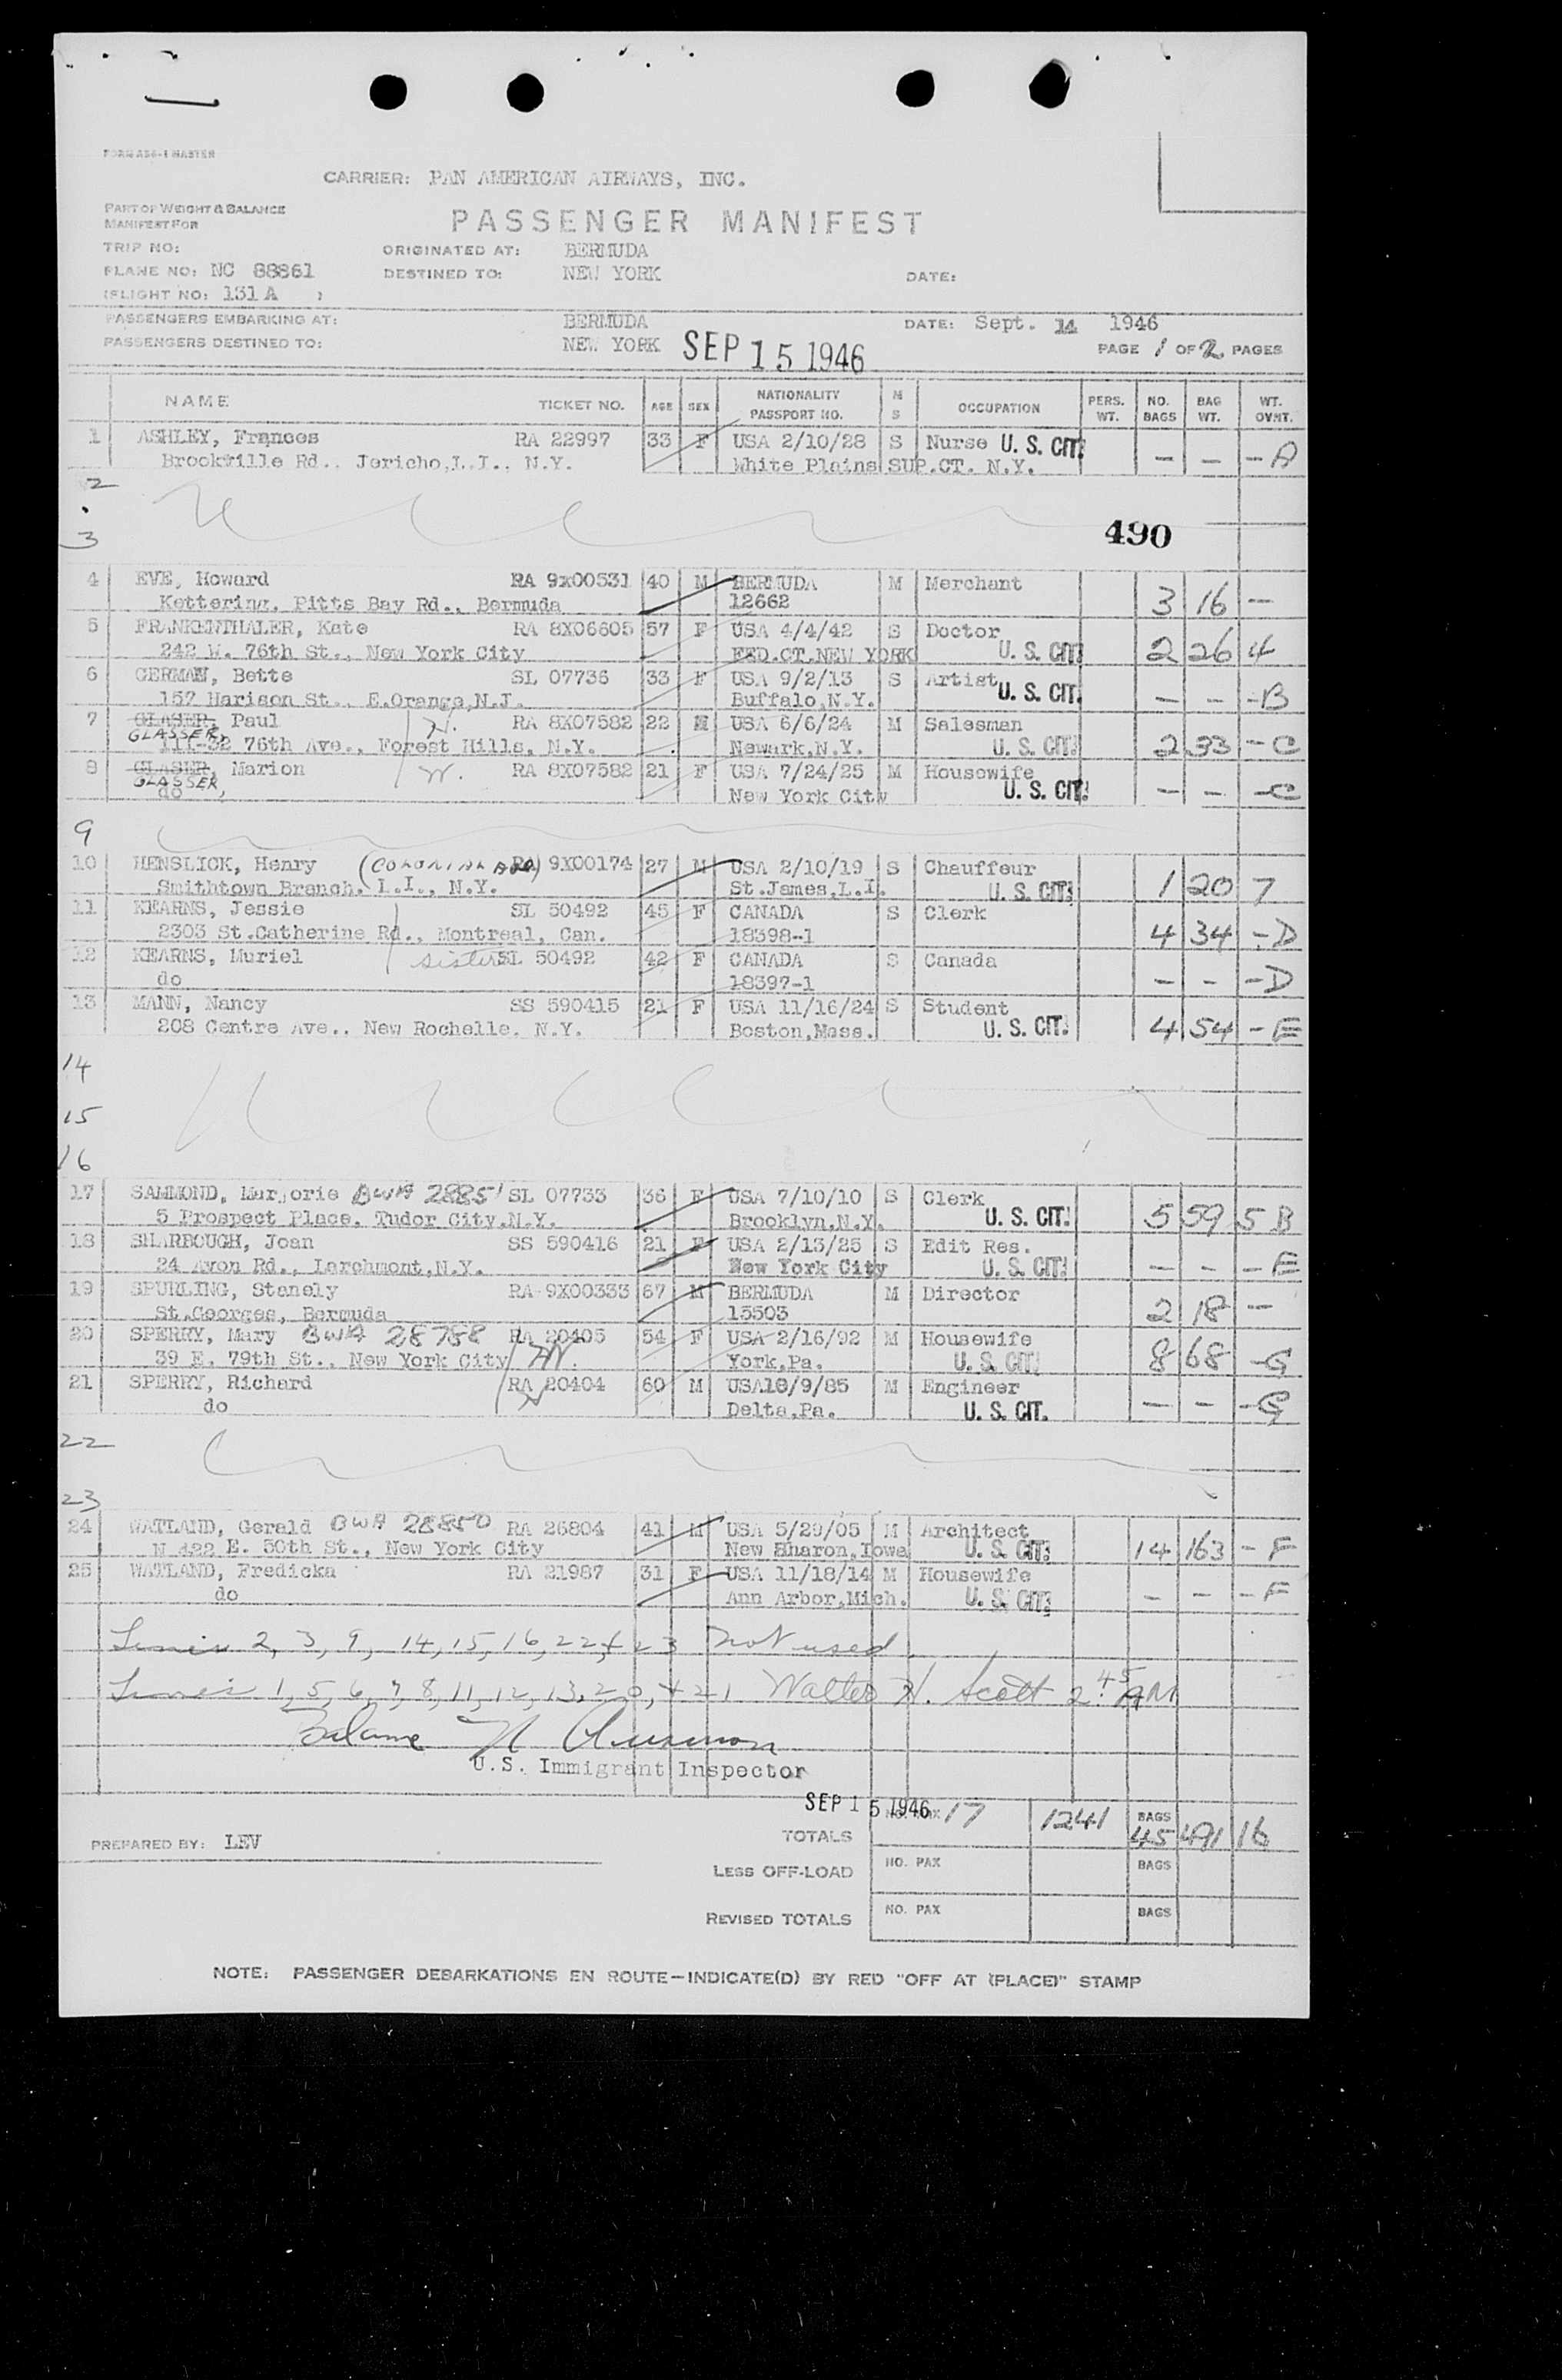 FORM A36-1 MASTER
CARRIER: PAN AMERICAN AIRWAYS, INC.
PART OF WEIGHT & BALANCE
MANIFEST FOR
PASSENGER MANIFEST
TRIP NO: ORIGINATED AT: BERMUDA
PLANE NO: NC 88861 DESTINED TO: NEW YORK DATE:
(FLIGHT NO: 131 A )
PASSENGERS EMBARKING AT: BERMUDA DATE: Sept. 14 1946
PASSENGERS DESTINED TO: NEW YORK SEP 15 1946 PAGE 1 OF 2 PAGES
NAME TICKET NO. AGE SEX NATIONALITY PASSPORT NO. M S OCCUPATION PERS. WT. NO. BAGS BAG WT. WT. OVNT.
1 ASHLEY, Frances RA 22997 33 F USA 2/10/28 S Nurse U. S. CIT.
Brookville Rd., Jericho, L.I., N.Y. White Plains SUP.CT. N.Y. — — — A
2
3 490
4 EVE, Howard RA 9x00531 40 M BERMUDA M Merchant
Kettering, Pitts Bay Rd., Bermuda 12662 3 16 —
5 FRANKENTHALER, Kate RA 8X06605 57 F USA 4/4/42 S Doctor
242 W. 76th St., New York City FED.CT.NEW YORK U. S. CIT. 2 26 4
6 GERMAN, Bette SL 07736 33 F USA 9/2/13 S Artist
157 Harison St., E.Orange,N.J. Buffalo,N.Y. U. S. CIT. — — -B
7 GLASER, Paul H. RA 8X07582 22 M USA 6/6/24 M Salesman
GLASSER, 111-32 76th Ave., Forest Hills, N.Y. Newark,N.Y. U. S. CIT. 2 33 - C
8 GLASER, Marion W. RA 8X07582 21 F USA 7/24/25 M Housewife
GLASSER, do New York City U. S. CIT. — — -C
9
10 HENSLICK, Henry RA 9X00174 27 M USA 2/10/19 S Chauffeur
Smithtown Branch, L.I., N.Y. St.James,L.I. U. S. CIT. 1 20 7
11 KEARNS, Jessie SL 50492 45 F CANADA S Clerk
2303 St.Catherine Rd., Montreal, Can. 18398-1 4 34 - D
12 KEARNS, Muriel sisters SL 50492 42 F CANADA S Canada
do 18397-1 — - -D
13 MANN, Nancy SS 590415 21 F USA 11/16/24 S Student
208 Centre Ave., New Rochelle, N.Y. Boston,Mass. U. S. CIT. 4 54 - E
14
15
16
17 SAMMOND, Marjorie BWA 28851 SL 07733 36 F USA 7/10/10 S Clerk
5 Prospect Place, Tudor City,N.Y. Brooklyn,N.Y. U. S. CIT. 5 59 5 B
18 SHARBOUGH, Joan SS 590416 21 F USA 2/13/25 S Edit Res.
24 Avon Rd., Larchmont,N.Y. New York City U. S. CIT. — - - E
19 SPURLING, Stanely RA 9X00333 67 M BERMUDA M Director
St.Georges, Bermuda 15503 2 18 —
20 SPERRY, Mary BWA 28788 RA 20405 54 F USA 2/16/92 M Housewife
39 E. 79th St., New York City York,Pa. U. S. CIT. 8 68 -G
21 SPERRY, Richard RA 20404 60 M USA10/9/85 M Engineer
do Delta,Pa. U. S. CIT. — - -G
22
23
24 WATLAND, Gerald BWA 28850 RA 26804 41 M USA 5/29/05 M Architect
422 E. 50th St., New York City New Sharon,Iowa U. S. CIT. 14 163 - F
25 WATLAND, Fredicka RA 21987 31 F USA 11/18/14 M Housewife
do Ann Arbor,Mich. U. S. CIT. - - - F
Lines 2, 3, 9, 14, 15, 16, 22, + 23 not used
Lines 1, 5, 6, 7, 8, 11, 12, 13, 20, + 21 Walter H. Scott 2:45 AM
Balance
U.S. Immigrant Inspector
SEP 15 1946
TOTALS NO. PAX 17 1241 BAGS 45 491 16
PREPARED BY: LEV
LESS OFF-LOAD NO. PAX BAGS
REVISED TOTALS NO. PAX BAGS
NOTE: PASSENGER DEBARKATIONS EN ROUTE—INDICATE(D) BY RED "OFF AT (PLACE)" STAMP